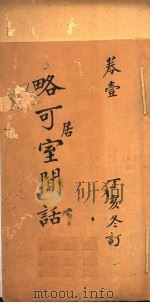 卷壹 丁亥冬訂
略可居室閒話